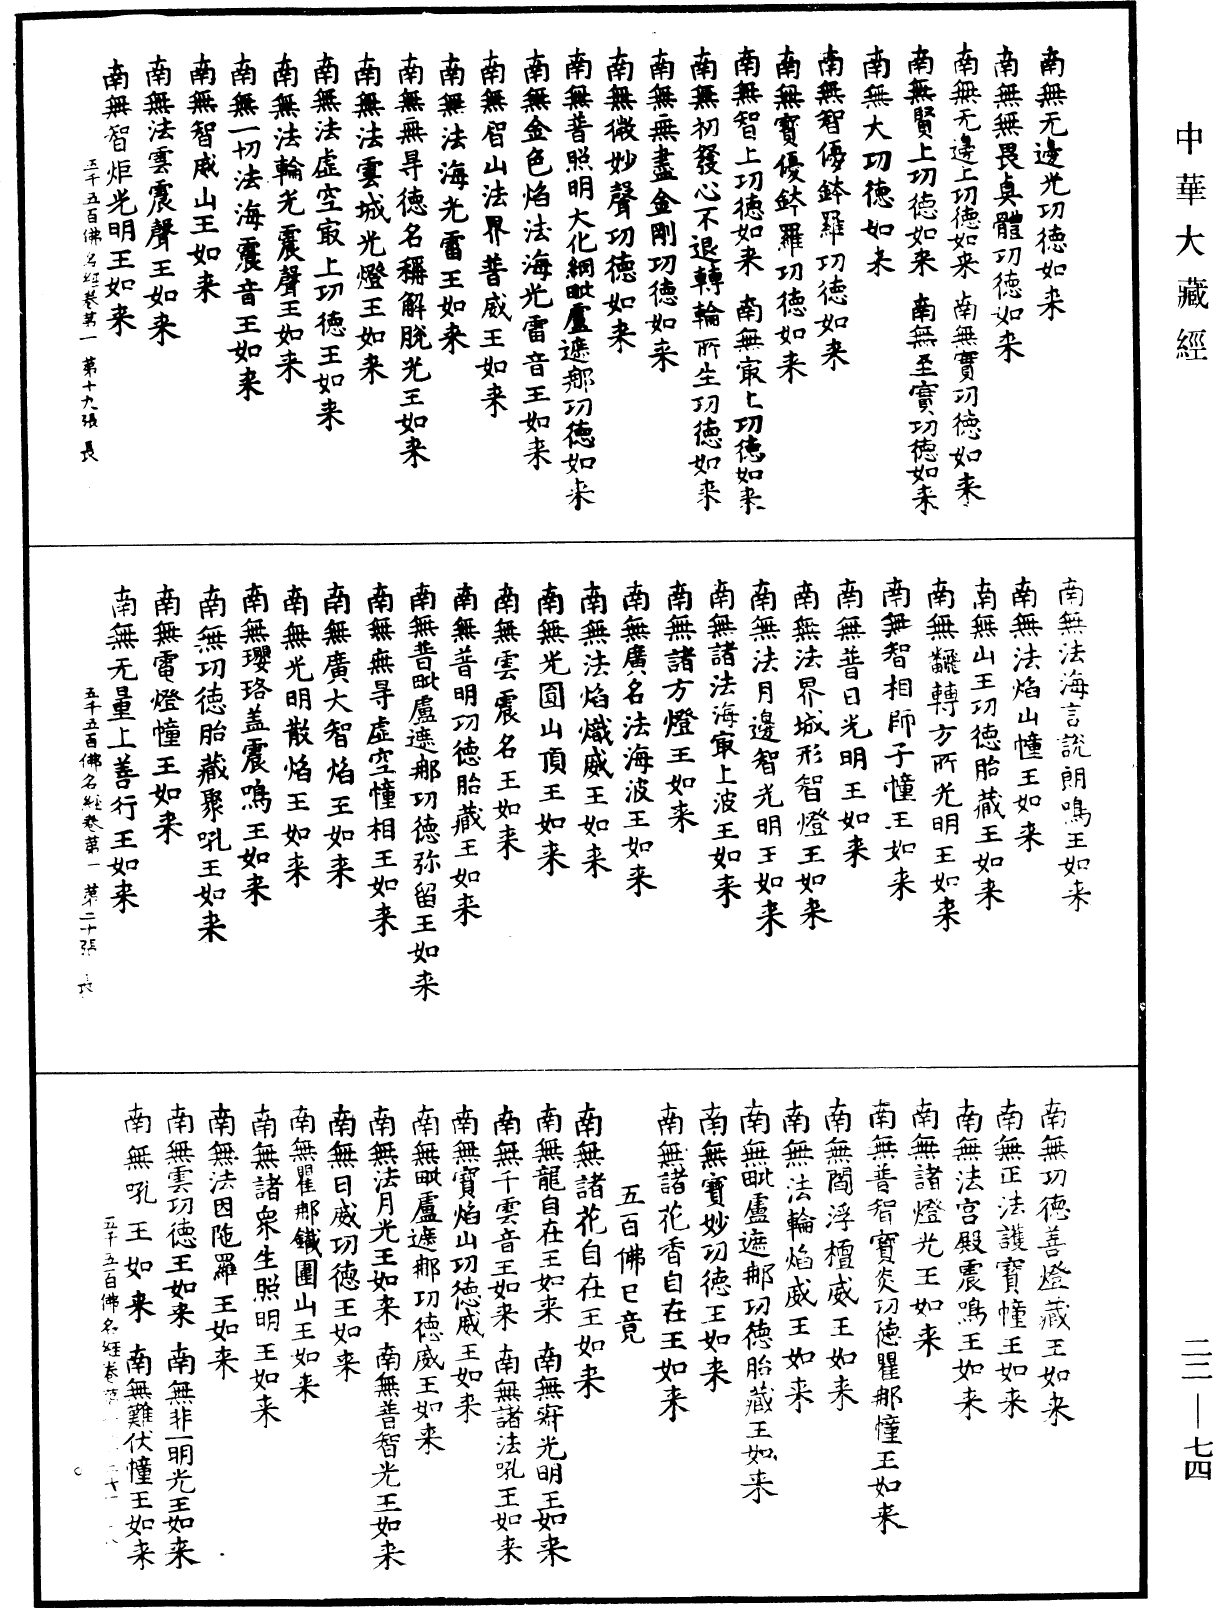 中華大藏經
南無无邊光功德如来
南無無畏真體功德如来
南無无邊上功德如来 南無寶功德如来
南無賢上功德如来 南無至寶功德如来
南無大功德如来
南無智優鉢羅功德如来
南無寶優鉢羅功德如来
南無智上功德如来 南無㝡上功德如来
南無初發心不退轉輪所生功德如来
南無無盡金剛功德如来
南無微妙聲功德如来
南無普照明大化網毗盧遮那功德如来
南無金色焰法海光雷音王如来
南無智山法界普威王如来
南無法海光雷王如来
南無無㝵德名稱解脫光王如来
南無法雲城光燈王如来
南無法虛空㝡上功德王如来
南無法輪光震聲王如来
南無一切法海震音王如来
南無智威山王如来
南無法雲震聲王如来
南無智炬光明王如来
五千五百佛名經卷第一 第十九張 長
南無法海言說朗鳴王如来
南無法焰山幢王如来
南無山王功德胎藏王如来
南無飜轉方所光明王如来
南無智相師子幢王如来
南無普日光明王如来
南無法界城形智燈王如来
南無法月邊智光明王如来
南無諸法海㝡上波王如来
南無諸方燈王如来
南無廣名法海波王如来
南無法焰熾威王如来
南無光圓山頂王如来
南無雲震名王如来
南無普明功德胎藏王如来
南無普毗盧遮那功德弥留王如来
南無無㝵虛空幢相王如来
南無廣大智焰王如来
南無光明散焰王如来
南無瓔珞盖震鳴王如来
南無功德胎藏聚吼王如来
南無電燈幢王如来
南無无量上善行王如来
五千五百佛名經卷第一 第二十張 長
南無功德善燈藏王如来
南無正法護寶幢王如来
南無法宫殿震鳴王如来
南無諸燈光王如来
南無普智寶炎功德瞿那幢王如来
南無閻浮檀威王如来
南無法輪焰威王如来
南無毗盧遮那功德胎藏王如来
南無寶妙功德王如来
南無諸花香自在王如来
五百佛已竟
南無諸花自在王如来
南無龍自在王如来 南無㝛光明王如来
南無千雲音王如来 南無諸法吼王如来
南無寶焰山功德威王如来
南無毗盧遮那功德威王如来
南無法月光王如来 南無普智光王如来
南無日威功德王如来
南無瞿那鐵圍山王如来
南無諸衆生照明王如来
南無法因陁羅王如来
南無雲功德王如来 南無非一明光王如来
南無吼王如来 南無難伏幢王如来
五千五百佛名經卷第
二二—七四